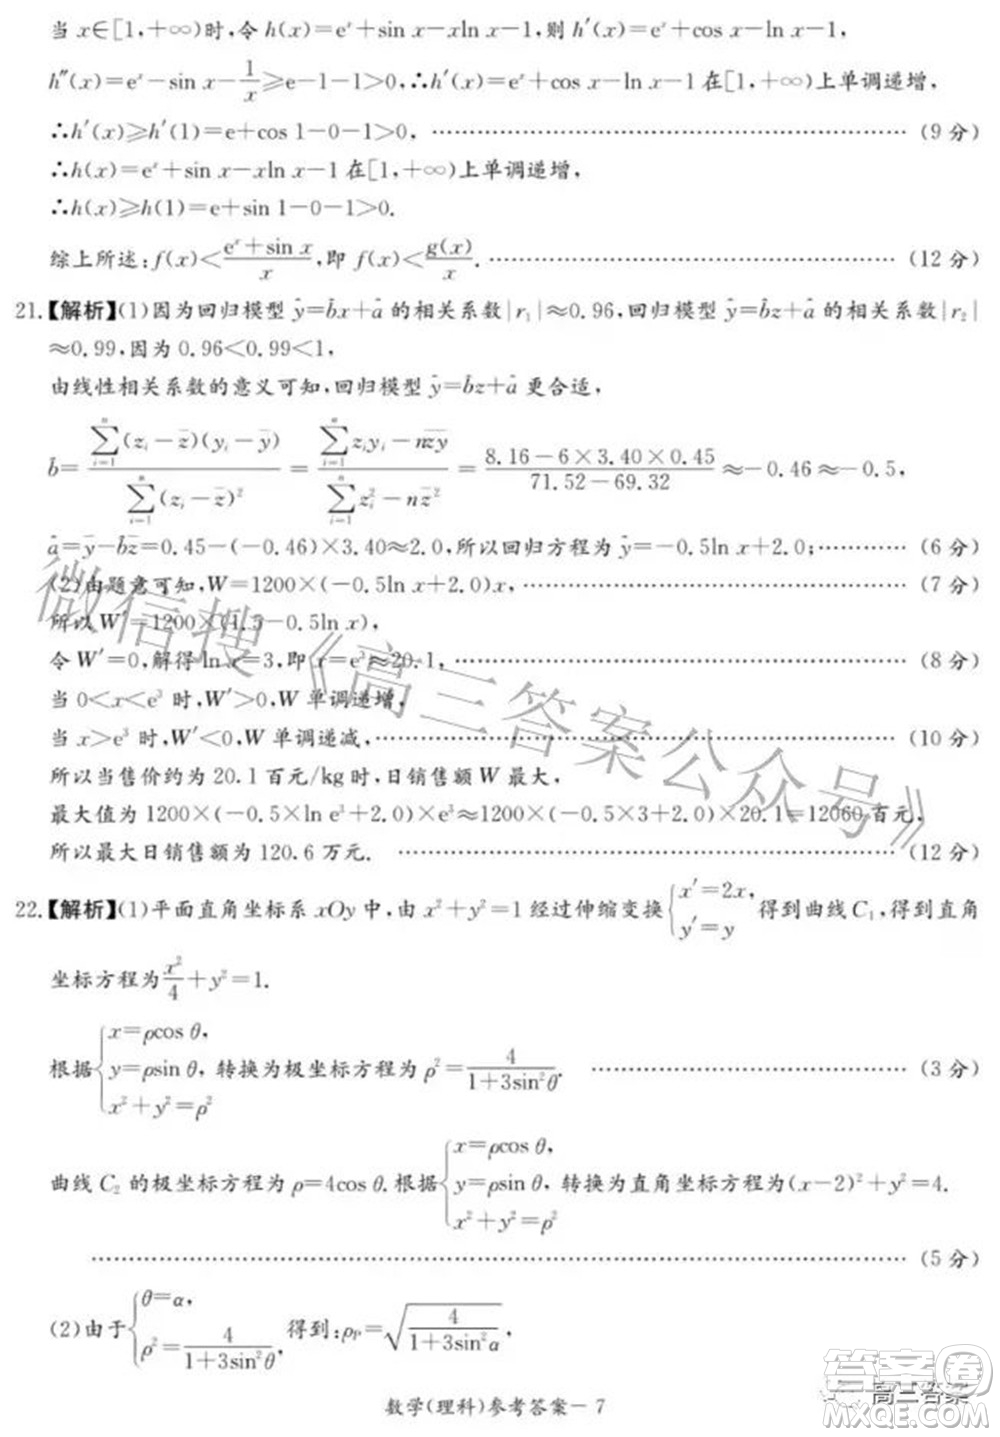 当 x∈[1,+∞)时,令 h(x)=eˣ+sin x-xln x-1,则 h′(x)=eˣ+cos x-ln x-1,
h″(x)=eˣ-sin x-1/x≥e-1-1>0,∴h′(x)=eˣ+cos x-ln x-1 在[1,+∞)上单调递增,
∴h′(x)≥h′(1)=e+cos 1-0-1>0, ……………………………… (9 分)
∴h(x)=eˣ+sin x-xln x-1 在[1,+∞)上单调递增,
∴h(x)≥h(1)=e+sin 1-0-1>0.
综上所述:f(x)<(eˣ+sin x)/x,即 f(x)<g(x)/x. ……………………………… (12 分)
21.【解析】(1)因为回归模型 ŷ=b̂x+â 的相关系数|r₁|≈0.96,回归模型 ŷ=b̂z+â 的相关系数|r₂|
≈0.99,因为 0.96<0.99<1,
由线性相关系数的意义可知,回归模型 ŷ=b̂z+â 更合适,
b̂=∑ⁿᵢ₌₁(zᵢ-z̄)(yᵢ-ȳ)/∑ⁿᵢ₌₁(zᵢ-z̄)²=(∑ⁿᵢ₌₁zᵢyᵢ-nz̄ȳ)/(∑ⁿᵢ₌₁zᵢ²-nz̄²)=(8.16-6×3.40×0.45)/(71.52-69.32)≈-0.46≈-0.5,
â=ȳ-b̂z̄=0.45-(-0.46)×3.40≈2.0,所以回归方程为 ŷ=-0.5ln x+2.0;………… (6 分)
(2)由题意可知,W=1200×(-0.5ln x+2.0)x, ……………………………… (7 分)
所以 W′=1200×(1.5-0.5ln x),
令 W′=0,解得 ln x=3,即 x=e³≈20.1, ……………………………… (8 分)
当 0<x<e³ 时,W′>0,W 单调递增,
当 x>e³ 时,W′<0,W 单调递减,……………………………… (10 分)
所以当售价约为 20.1 百元/kg 时,日销售额 W 最大,
最大值为 1200×(-0.5×ln e³+2.0)×e³≈1200×(-0.5×3+2.0)×20.1=12060 百元,
所以最大日销售额为 120.6 万元. ……………………………… (12 分)
22.【解析】(1)平面直角坐标系 xOy 中,由 x²+y²=1 经过伸缩变换{x′=2x, y′=y 得到曲线 C₁,得到直角
坐标方程为x²/4+y²=1.
根据{x=ρcos θ, y=ρsin θ, x²+y²=ρ² 转换为极坐标方程为 ρ²=4/(1+3sin²θ). ……………………………… (3 分)
曲线 C₂ 的极坐标方程为 ρ=4cos θ.根据{x=ρcos θ, y=ρsin θ, x²+y²=ρ² 转换为直角坐标方程为(x-2)²+y²=4.
……………………………… (5 分)
(2)由于{θ=α, ρ²=4/(1+3sin²θ), 得到:ρP=√(4/(1+3sin²α)),
数学(理科)参考答案-7
微信搜《高三答案公众号》
答案圈
高三答案
MXQE.COM